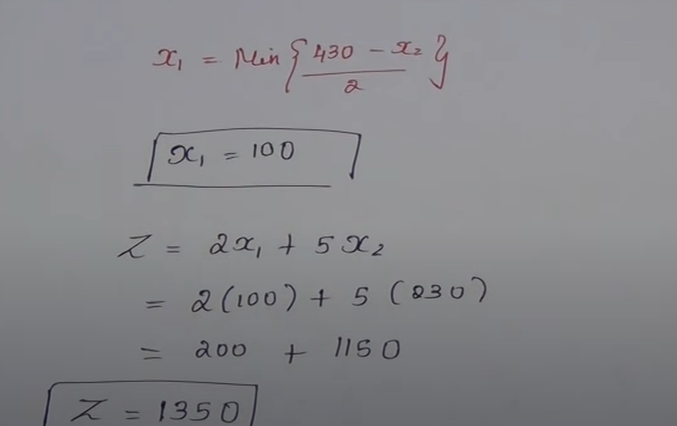 x₁ = Min { (430 - x₂) / 2 }
x₁ = 100
Z = 2x₁ + 5x₂
= 2(100) + 5 (230)
= 200 + 1150
Z = 1350